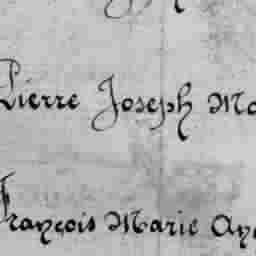 Pierre Joseph
François Marie